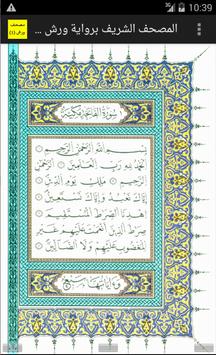 10:39
المصحف الشريف برواية ورش ...
مصحف
ورش (1)
سورة الفاتحة مكية
بسم الله الرحمن الرحيم
الحمد لله رب العلمين الرحمن
الرحيم ملك يوم الدين
إياك نعبد وإياك نستعين
اهدنا الصرط المستقيم
صرط الذين أنعمت عليهم غير
المغضوب عليهم ولا الضالين